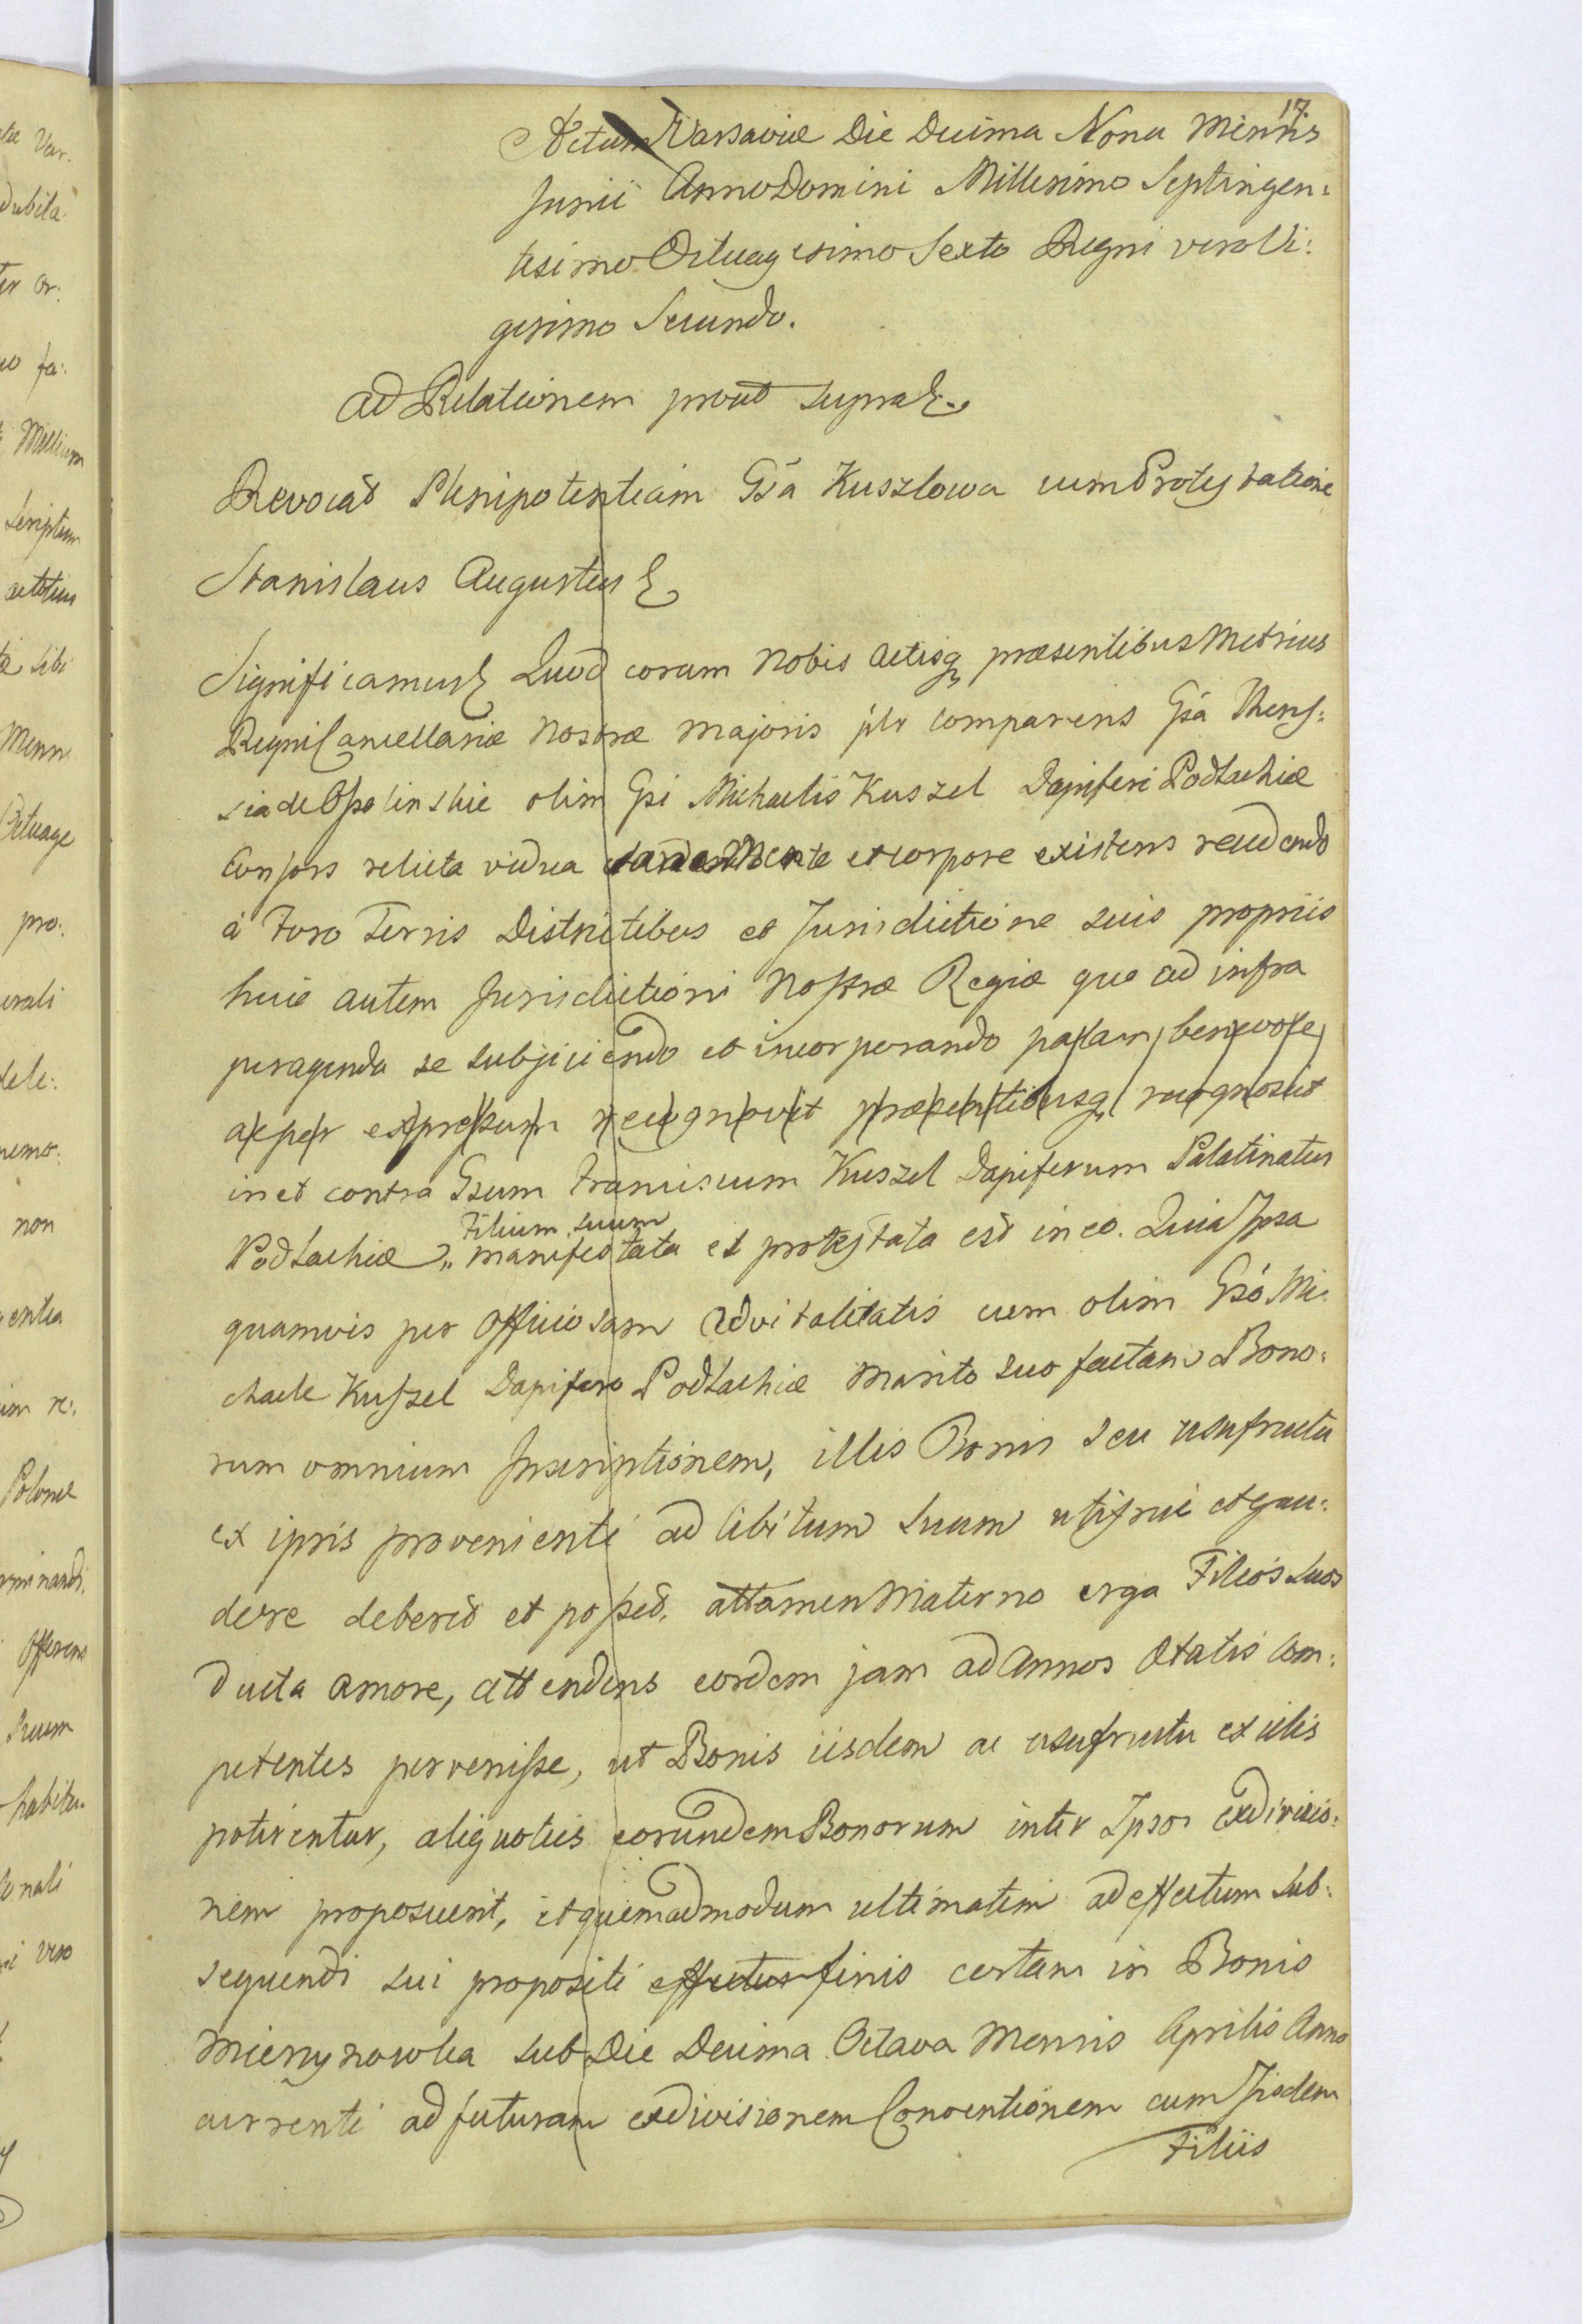 17.
Actum Varsaviæ Die Decima Nona Mensis
Junii Anno Domini Millesimo Septingen:
tesimo Octuagesimo Sexto Regni vero Vi:
gesimo Secundo.
Ad Relationem prout supra
Revocat Plenipotentiam Gsa Kuszlowa cum Protestatione
Stanislaus Augustus
Significamus Quod coram Nobis Actisq præsentibus Metrices
Regni Cancellariæ Nostræ Majoris plr comparens Gsa
sia de Opalinskie olim Gsi Michaelis Kuszel Dapiferi Podlachiæ
Consors relicta vidua Mente et corpore existens recedendo
à Foro Terris Districtibus et Jurisdictione suis propriis
huic autem Jurisdictioni Nostræ Regiæ quo ad infra
peragenda se subjiciendo et incorporando palam benevole
acper expressum recognovit præsentibusq recognoscit
in et contra Gsum Franciscum Kuszel Dapiferum Palatinatus
Filium suum
Podlachiæ „ manifestata et protestata est in eo. Quia Ipsa
quamvis per officiosam Advitalitatis cum olim Gso Mi:
chaele Kuszel Dapifero Podlachiæ Marito suo factam Bono:
rum omnium Inscriptionem, illis Bonis seu usufructu
ex ipsis provenienti ad libitum suum utifrui et gau:
dere deberet et posset, attamen Materno erga Filios suos
ducta amore, attendens eosdem jam ad Annos Ætatis com:
petentes pervenisse, ut Bonis iisdem ac usufructu ex illis
potirentur, aliquoties eorundem Bonorum inter Ipsos exdivisio:
nem proposuerit, et quemadmodum ultimatim ad effectum sub:
sequendi sui propositi effectus finis certam in Bonis
sub Die Decima Octava Mensis Aprilis Anno
currenti ad futuram exdivisionem Conventionem cum Iisdem
Filiis